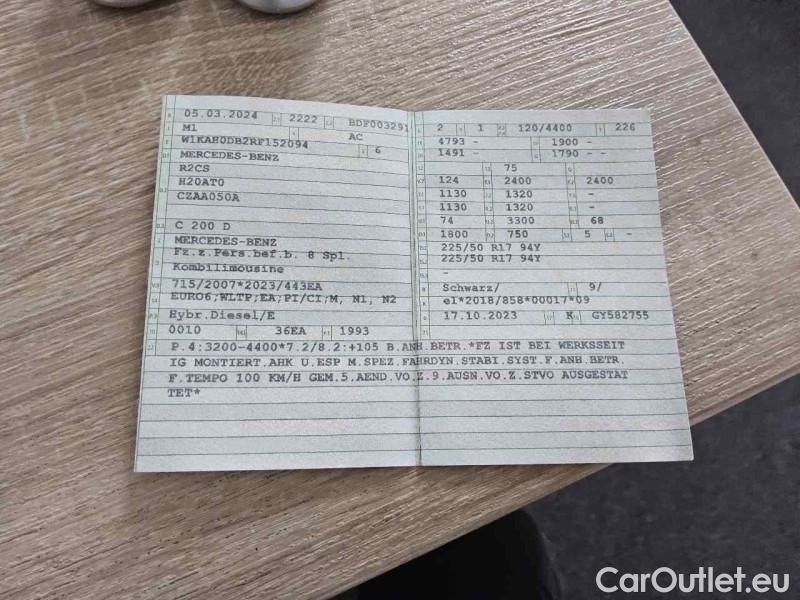 05.03.2024 2222 BDF003291
M1 AC
W1KAH0DB2RF152094 6
MERCEDES-BENZ
R2CS
H20AT0
CZAA050A
C 200 D
MERCEDES-BENZ
Fz.z.Pers.bef.b. 8 Spl.
Kombilimousine
715/2007*2023/443EA
EURO6;WLTP;EA;PI/CI;M, N1, N2
Hybr.Diesel/E
0010 36EA 1993
2 1 120/4400 226
4793 - 1900 -
1491 - 1790 - -
75
124 2400 2400
1130 1320 -
1130 1320 -
74 3300 68
1800 750 5 -
225/50 R17 94Y
225/50 R17 94Y
-
Schwarz/ 9/
e1*2018/858*00017*09
17.10.2023 K GY582755
P.4:3200-4400*7.2/8.2:+105 B.ANH.BETR.*FZ IST BEI WERKSSEIT
IG MONTIERT.AHK U.ESP M.SPEZ.FAHRDYN.STABI.SYST.F.ANH.BETR.
F.TEMPO 100 KM/H GEM.5.AEND.VO.Z.9.AUSN.VO.Z.STVO AUSGESTAT
TET*
CarOutlet.eu